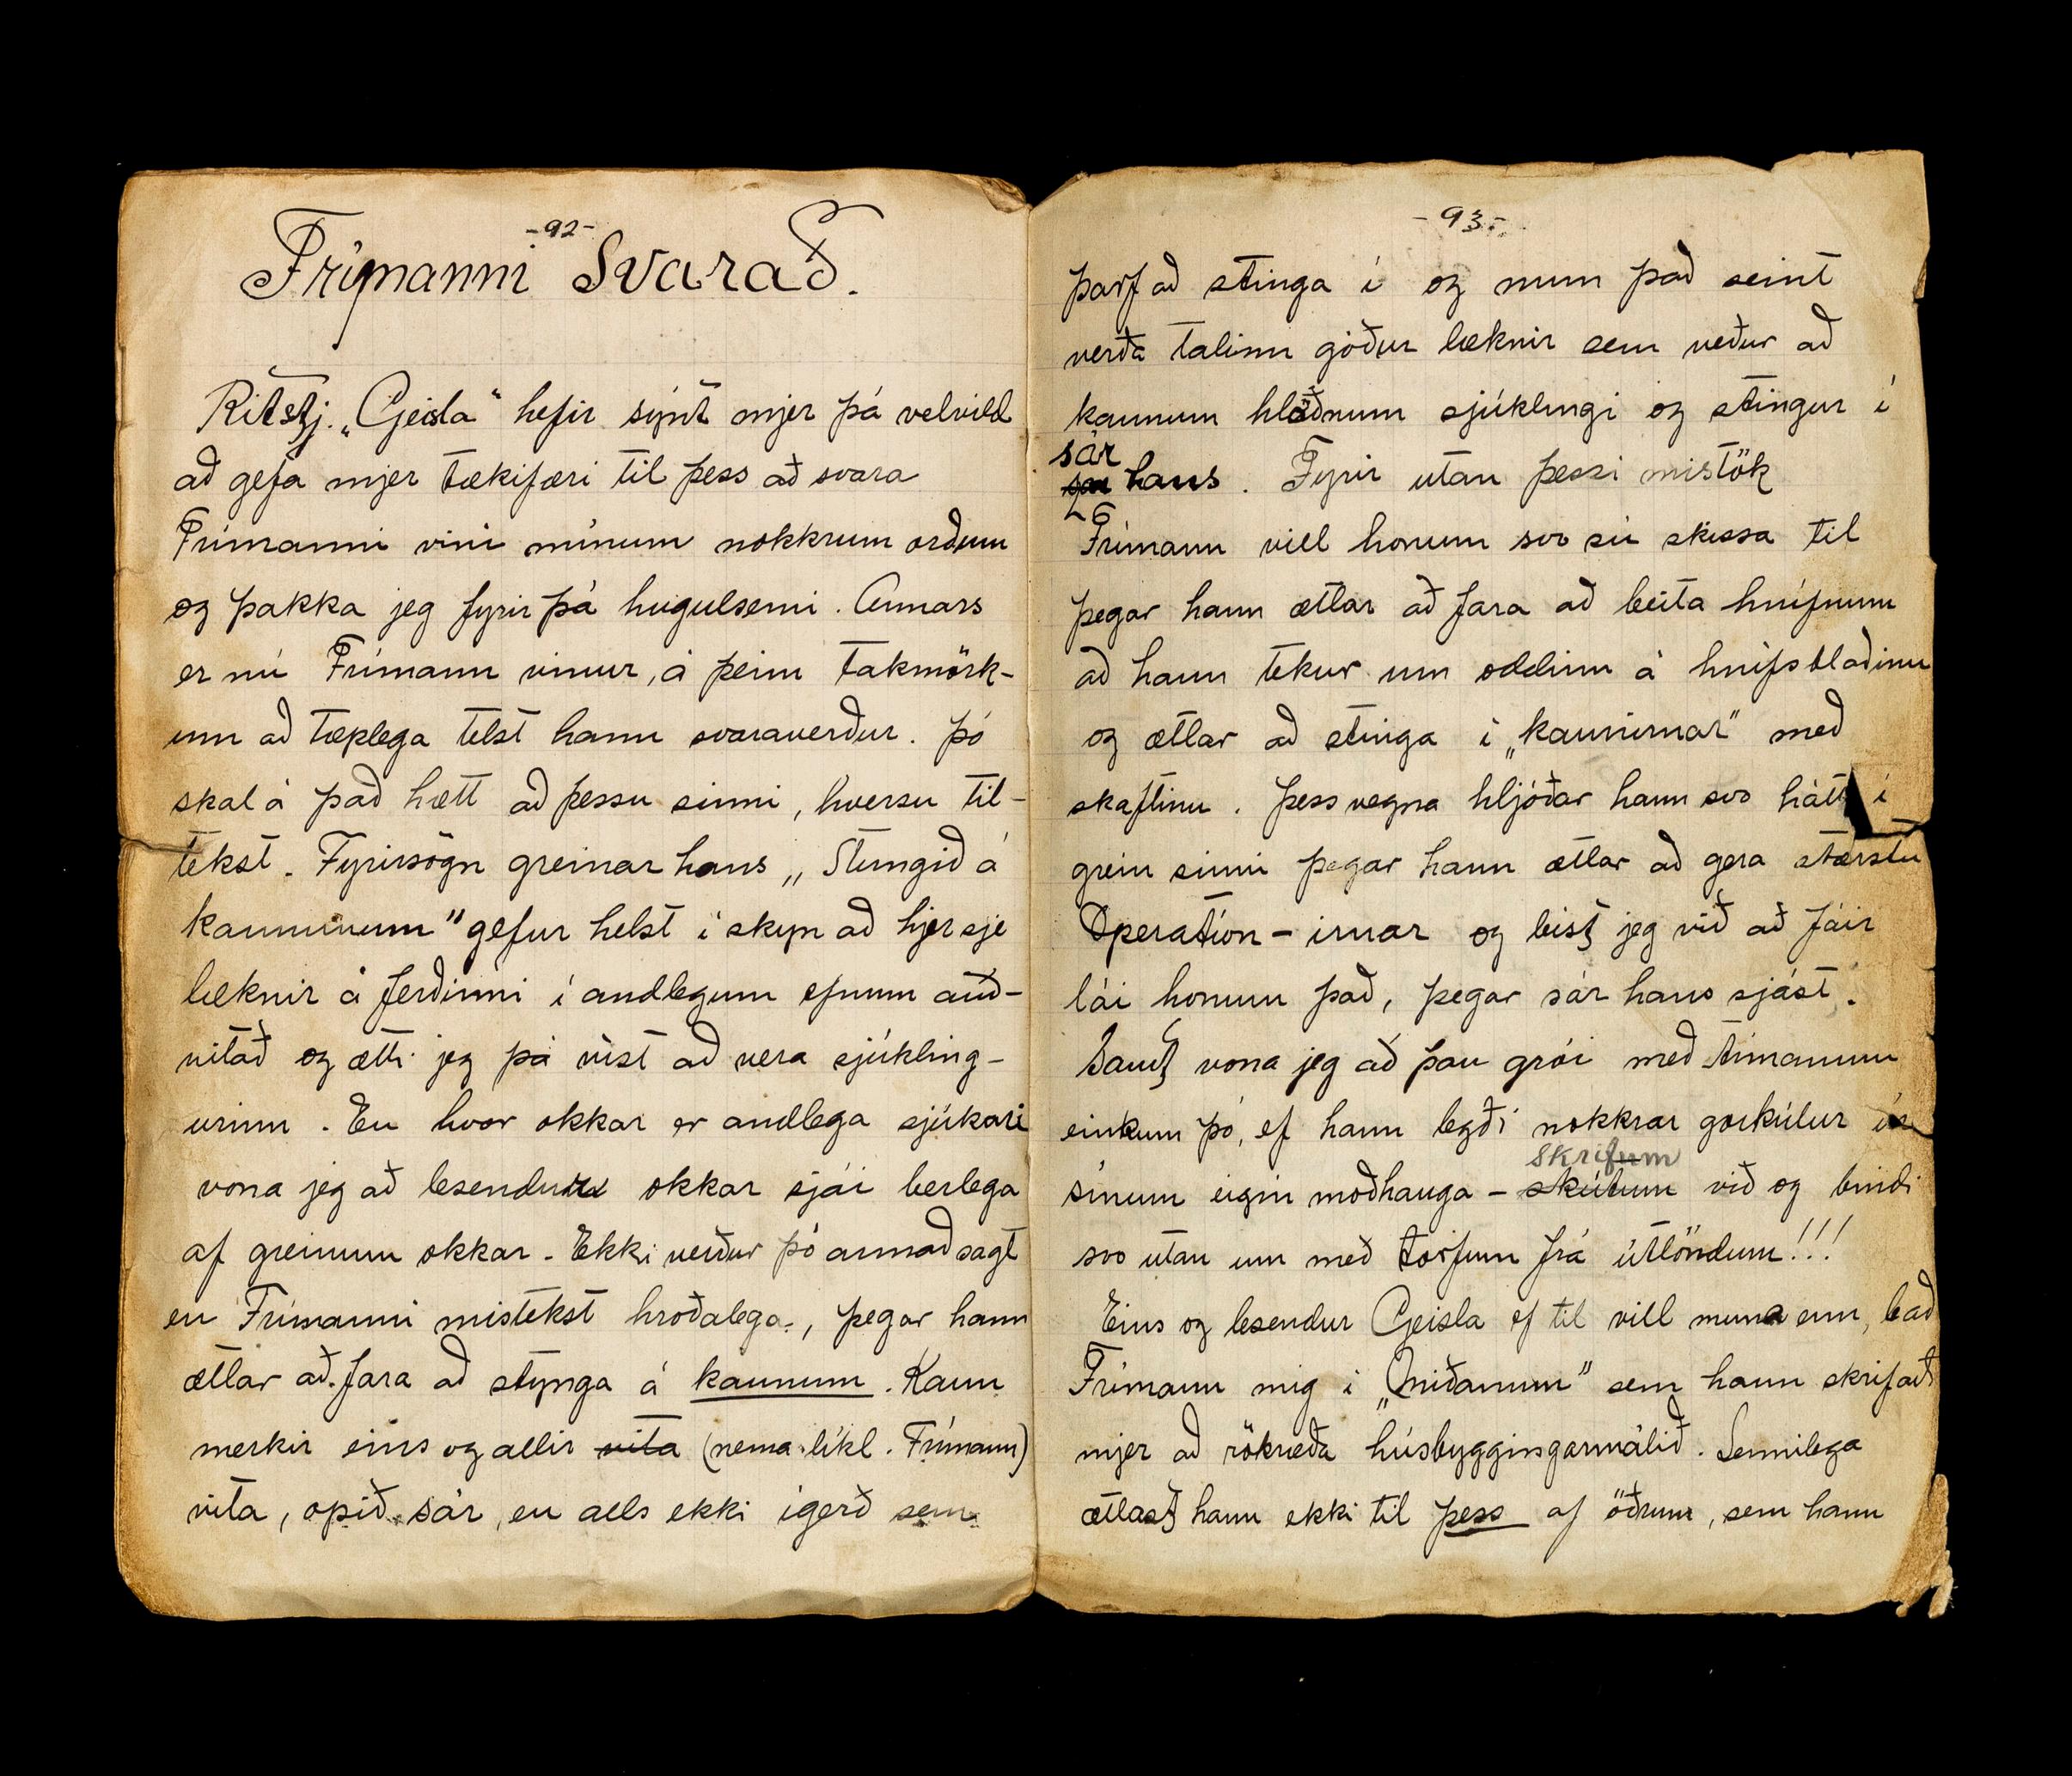 -92-
Frímanni Svarað.
Ritstj. „Geisla“ hefir sýnt mjer þá velvild
að gefa mjer tækifæri til þess að svara
Frímanni vini mínum nokkrum orðum
og þakka jeg fyrir þá hugulsemi. Annars
er nú Frímann vinur, á þeim takmörk-
um að tæplega telst hann svaraverður. Þó
skal á það hætt að þessu sinni, hversu til-
tekst. Fyrirsögn greinar hans „Stungið á
kaununum" gefur helst í skyn að hjer sje
læknir á ferðinni í andlegum efnum auð-
vitað og ætti jeg þá víst að vera sjúkling-
urinn. En hvor okkar er andlega sjúkari
vona jeg að lesendur okkar sjái berlega
af greinum okkar. Ekki verður þó annað sagt
en Frímanni mistekst hroðalega, þegar hann
ætlar að fara að stynga á kaunum. Kaun
merkir eins og allir vita (nema líkl. Frímann)
vita, opið sár, en alls ekki ígerð sem
-93-
þarf að stinga í og mun það seint
verða talinn góður læknir sem veður að
kaunum hlöðnum sjúklingi og stingur í
sár
hans. Fyrir utan þessi mistök
Frímann vill honum svo sú skissa til
þegar hann ætlar að fara að beita hnífnum
að hann tekur um oddinn á hnífsblaðinu
og ætlar að stinga í „kaunirnar" með
skaftinu. Þess vegna hljóðar hann svo hátt í
grein sinni þegar hann ætlar að gera stærstu
Operation-irnar og býst jeg við að fáir
lái honum það, þegar sár hans sjást.
Samt vona jeg að þau grói með tímanum
einkum þó, ef hann legði nokkrar gorkúlur úr
skrifum
sínum eigin moðhauga - skútum við og bindi
svo utan um með torfum frá útlöndum!!!
Eins og lesendur Geisla ef til vill muna enn, bað
Frímann mig í „Miðanum" sem hann skrifað
mjer að rökræða húsbyggingarmálið. Sennilega
ætlast hann ekki til þess af öðrum, sem hann